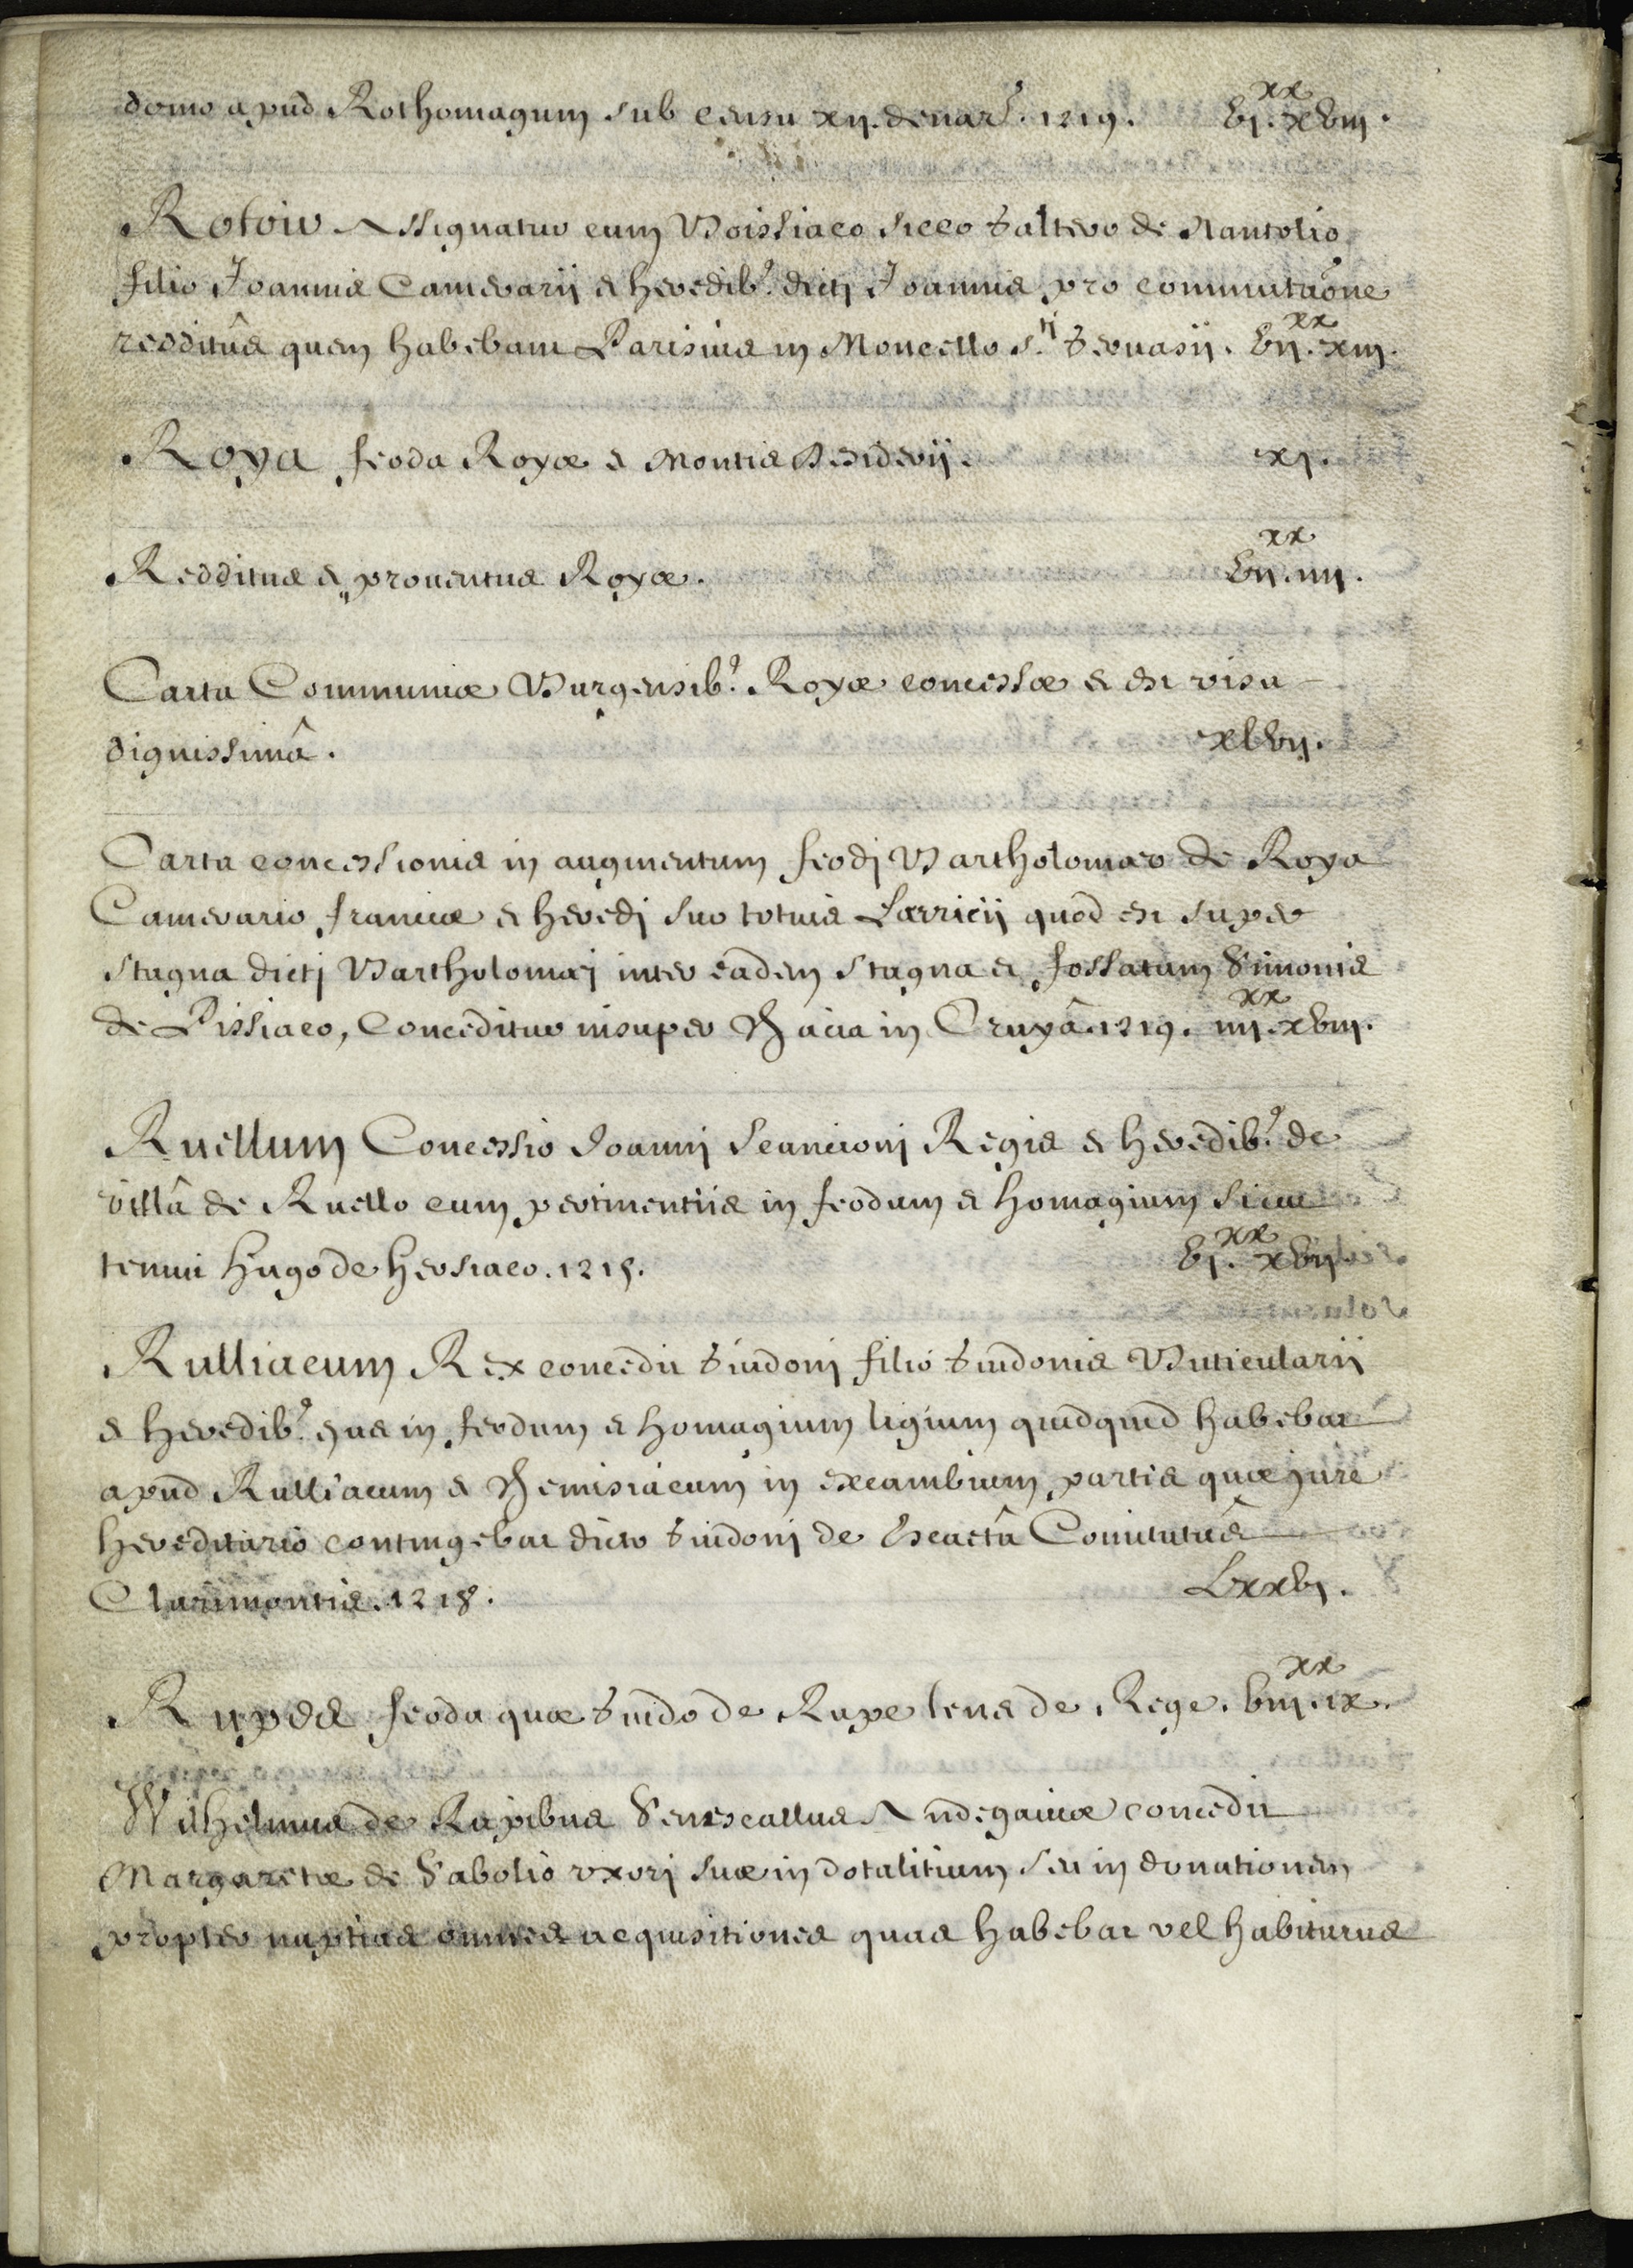 domo apud Rothomagum sub censu xij. denar?. 1219. vj.^xx xviij.
Rotoir Assignatur cum Boissiaco sicco Galtero de Nantolio
filio Joannis Camerarij & heredib? dicti Joannis pro commutaõne
redditûs quem habebant Parisius in Moncello s.ti Geruasij. vij.^xx xiij.
Roya feoda Royæ & Montis Desiderij. xj.
Redditus & prouentus Royæ. vij.^xx iiij.
Carta Communiæ Burgensib? Royæ concessæ & est visu
dignissimâ. xlvij.
Carta concessionis in augmentum feodj Bartholomæo de Roya
Camerario franciæ & heredj suo totius Larricij quod est super
stagna dictj Bartholomæj inter eadem stagna & fossatum Simonis
de Pissiaco, Conceditur insuper Haia in Cruyâ. 1219. iiij.^xx xviij.
Ruellum Concessio Joannj Scancionj Regis & heredib? de
villâ de Ruello cum pertinentiis in feodum & homagium sicut
tenuit Hugo de Hersiaco. 1215. vj.^xx xvij.
Rulliacum Rex concedit Guidonj filio Guidonis Buticularij
& heredib? ejus in feodum & homagium ligium quidquid habebat
apud Rulliacum & Hemisiacum in excambium partis quæ jure
hereditario contingebat dicto Guidonj de Escaetâ Comitatûs
Clarimontis. 1218. Lxxvj.
Rupes feoda quæ Guido de Rupe tenet de Rege. viij.^xx ix.
Wilhelmus de Rupibus Senescallus Andegauiæ concedit
Margaretæ de Sabolio vxorj suæ in dotalitium seu in donationem
propter nuptias omnes acquisitiones quas habebat vel habiturus